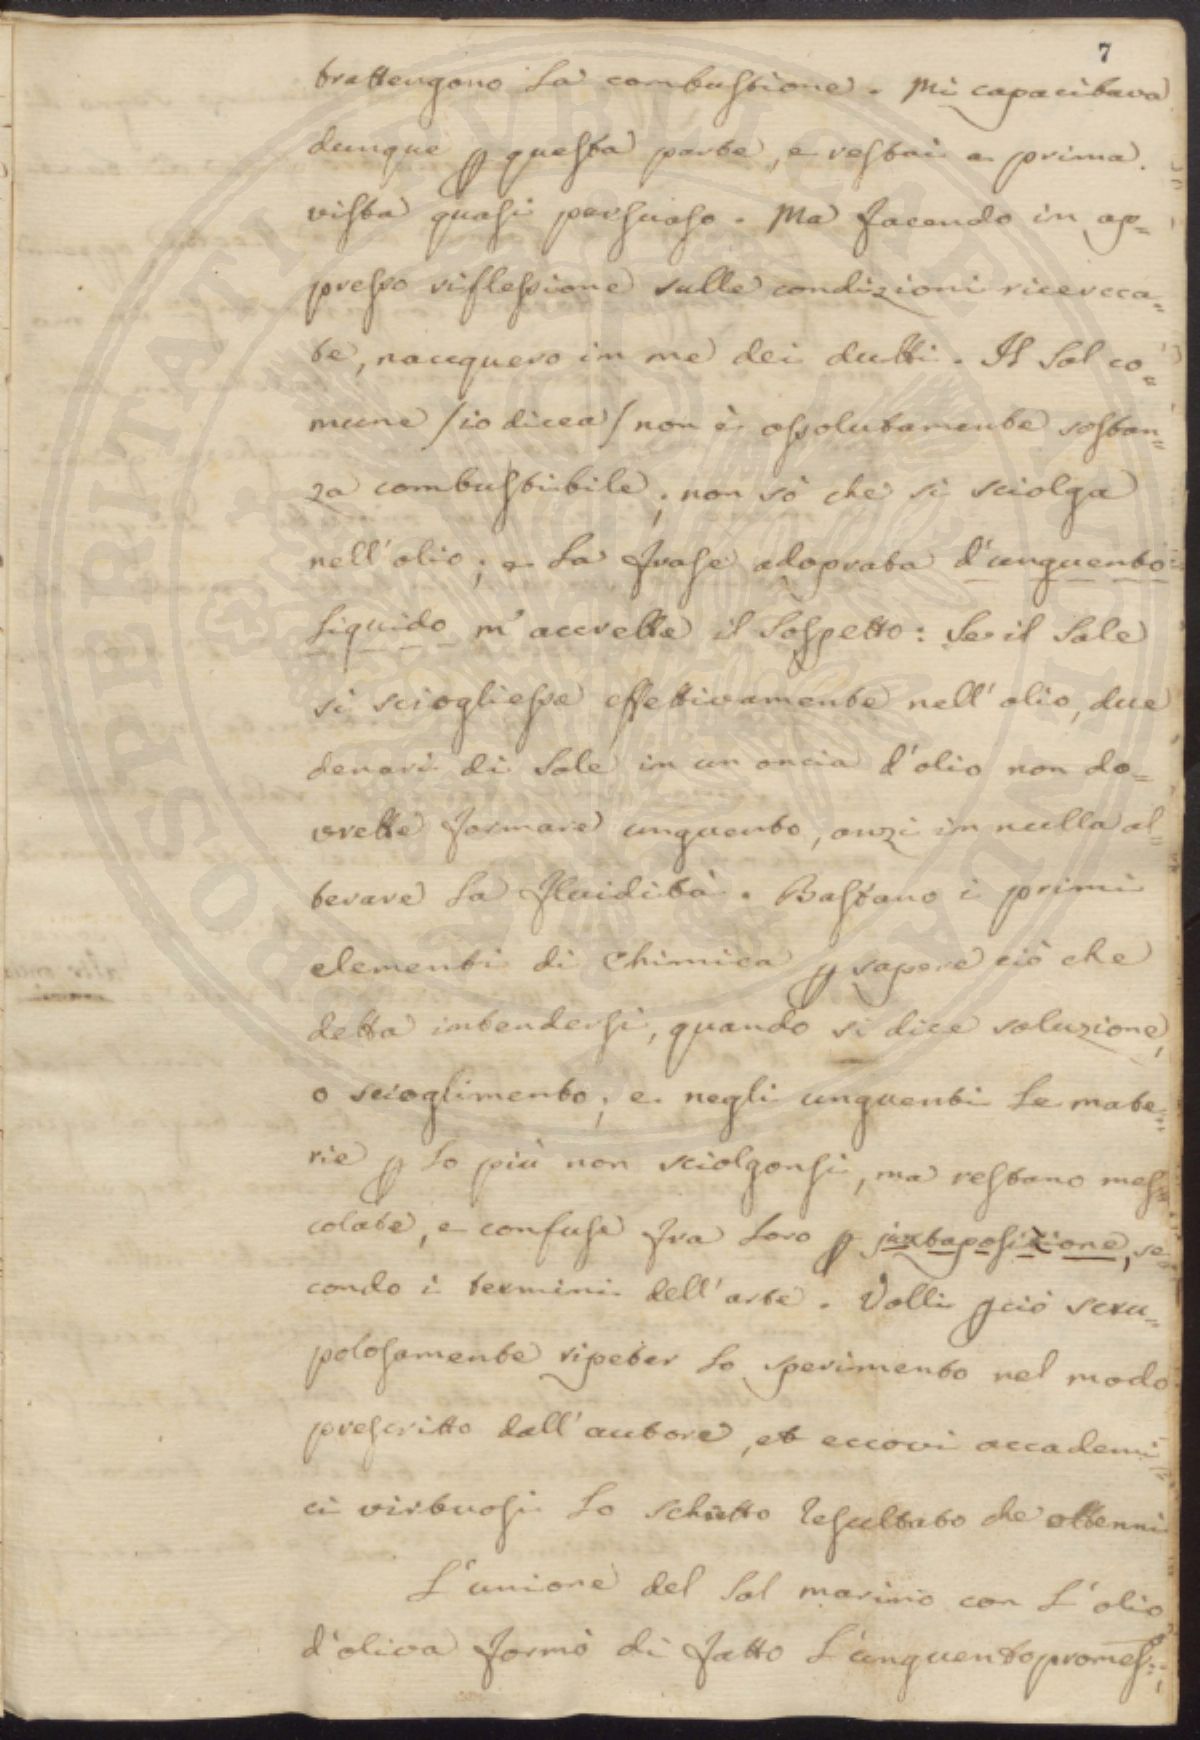 7
trattengono la combustione. Mi capacitava
dunque ꝑ questa parte, e restai a prima
vista quasi persuaso. Ma facendo in ap=
presso riflessione sulle condizioni ricerca=
te, nacquero in me dei dubbi. Il Sal co=
mune /io dicea/ non è assolutamente sostan=
za combustibile; non sò che si sciolga
nell'olio; e la frase adoprata d'unguento
liquido m'accrebbe il sospetto: Se il Sale
si sciogliesse effettivamente nell'olio, due
denari di Sale in un oncia d'olio non do=
vrebbe formare unguento, anzi in nulla al=
terare la fluidità. Bastano i primi
elementi di Chimica ꝑ sapere ciò che
debba intendersi, quando si dice soluzione,
o scioglimento; e negli unguenti le mate=
rie ꝑ lo più non sciolgonsi, ma restano mes=
colate, e confuse fra loro ꝑ juxtaposizione, se=
condo i termini dell'arte. Volli ꝑciò scru=
polosamente ripeter lo sperimento nel modo
prescritto dall'autore, et eccovi accademi=
ci virtuosi lo schietto resultato che ottenni
L'unione del Sal marino con l'olio
d'oliva formò di fatto l'unguento promes=
PROSPERITATI PVBLICAE